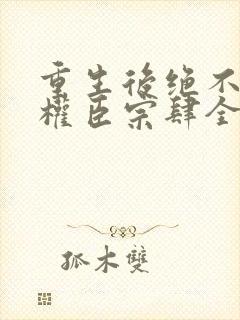 重生後绝不
權臣宗肆全
孤木雙